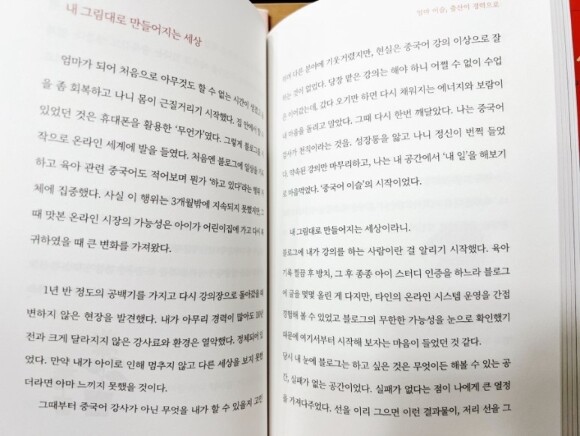 내 그림대로 만들어지는 세상
엄마가 되어 처음으로 아무것도 할 수 없는 시간이
을 좀 회복하고 나니 몸이 근질거리기 시작했다. 집 안에서
있었던 것은 휴대폰을 활용한 '무언가'였다. 그렇게 블로그를
작으로 온라인 세계에 발을 들였다. 처음엔 블로그에 일상을
하고 육아 관련 중국어도 적어보며 뭔가 '하고 있다'라는 행위
체에 집중했다. 사실 이 행위는 3개월밖에 지속되지 못했지만, 그
때 맛본 온라인 시장의 가능성은 아이가 어린이집에 가고 다시
귀하였을 때 큰 변화를 가져왔다.
1년 반 정도의 공백기를 가지고 다시 강의장으로 돌아갔을 때
변하지 않은 현장을 발견했다. 내가 아무리 경력이 많아도
전과 크게 달라지지 않은 강사료와 환경은 열악했다. 정체되어
었다. 만약 내가 아이로 인해 멈추지 않고 다른 세상을 보지 못했
더라면 아마 느끼지 못했을 것이다.
그때부터 중국어 강사가 아닌 무엇을 내가 할 수 있을지 고민
엄마 이슬, 출산이 경력으로
다른 분야에 기웃거렸지만, 현실은 중국어 강의 이상으로 잘
하는 것이 없었다. 당장 맡은 강의는 해야 하니 어쩔 수 없이 수업
이어갔는데, 갔다 오기만 하면 다시 채워지는 에너지와 보람이
내 마음을 돌리고 앉았다. 그때 다시 한번 깨달았다. 나는 중국어
강사가 천직이라는 것을. 성장통을 앓고 나니 정신이 번쩍 들었
약속된 강의만 마무리하고, 나는 내 공간에서 '내 일'을 해보기
로 마음먹었다. '중국어 이슬'의 시작이었다.
내 그림대로 만들어지는 세상이라니.
블로그에 내가 강의를 하는 사람이란 걸 알리기 시작했다. 육아
기록 찔끔 후 방치, 그 후 종종 아이 스터디 인증을 하느라 블로그
에 글을 몇몇 올린 게 다지만, 타인의 온라인 시스템 운영을 간접
경험해 볼 수 있었고 블로그의 무한한 가능성을 눈으로 확인했기
때문에 여기서부터 시작해 보자는 마음이 들었던 것 같다.
당시 내 눈에 블로그는 하고 싶은 것은 무엇이든 해볼 수 있는 공
간, 실패가 없는 공간이었다. 실패가 없다는 점이 나에게 큰 열정
을 가져다주었다. 선을 이리 그으면 이런 결과물이, 저리 선을 그